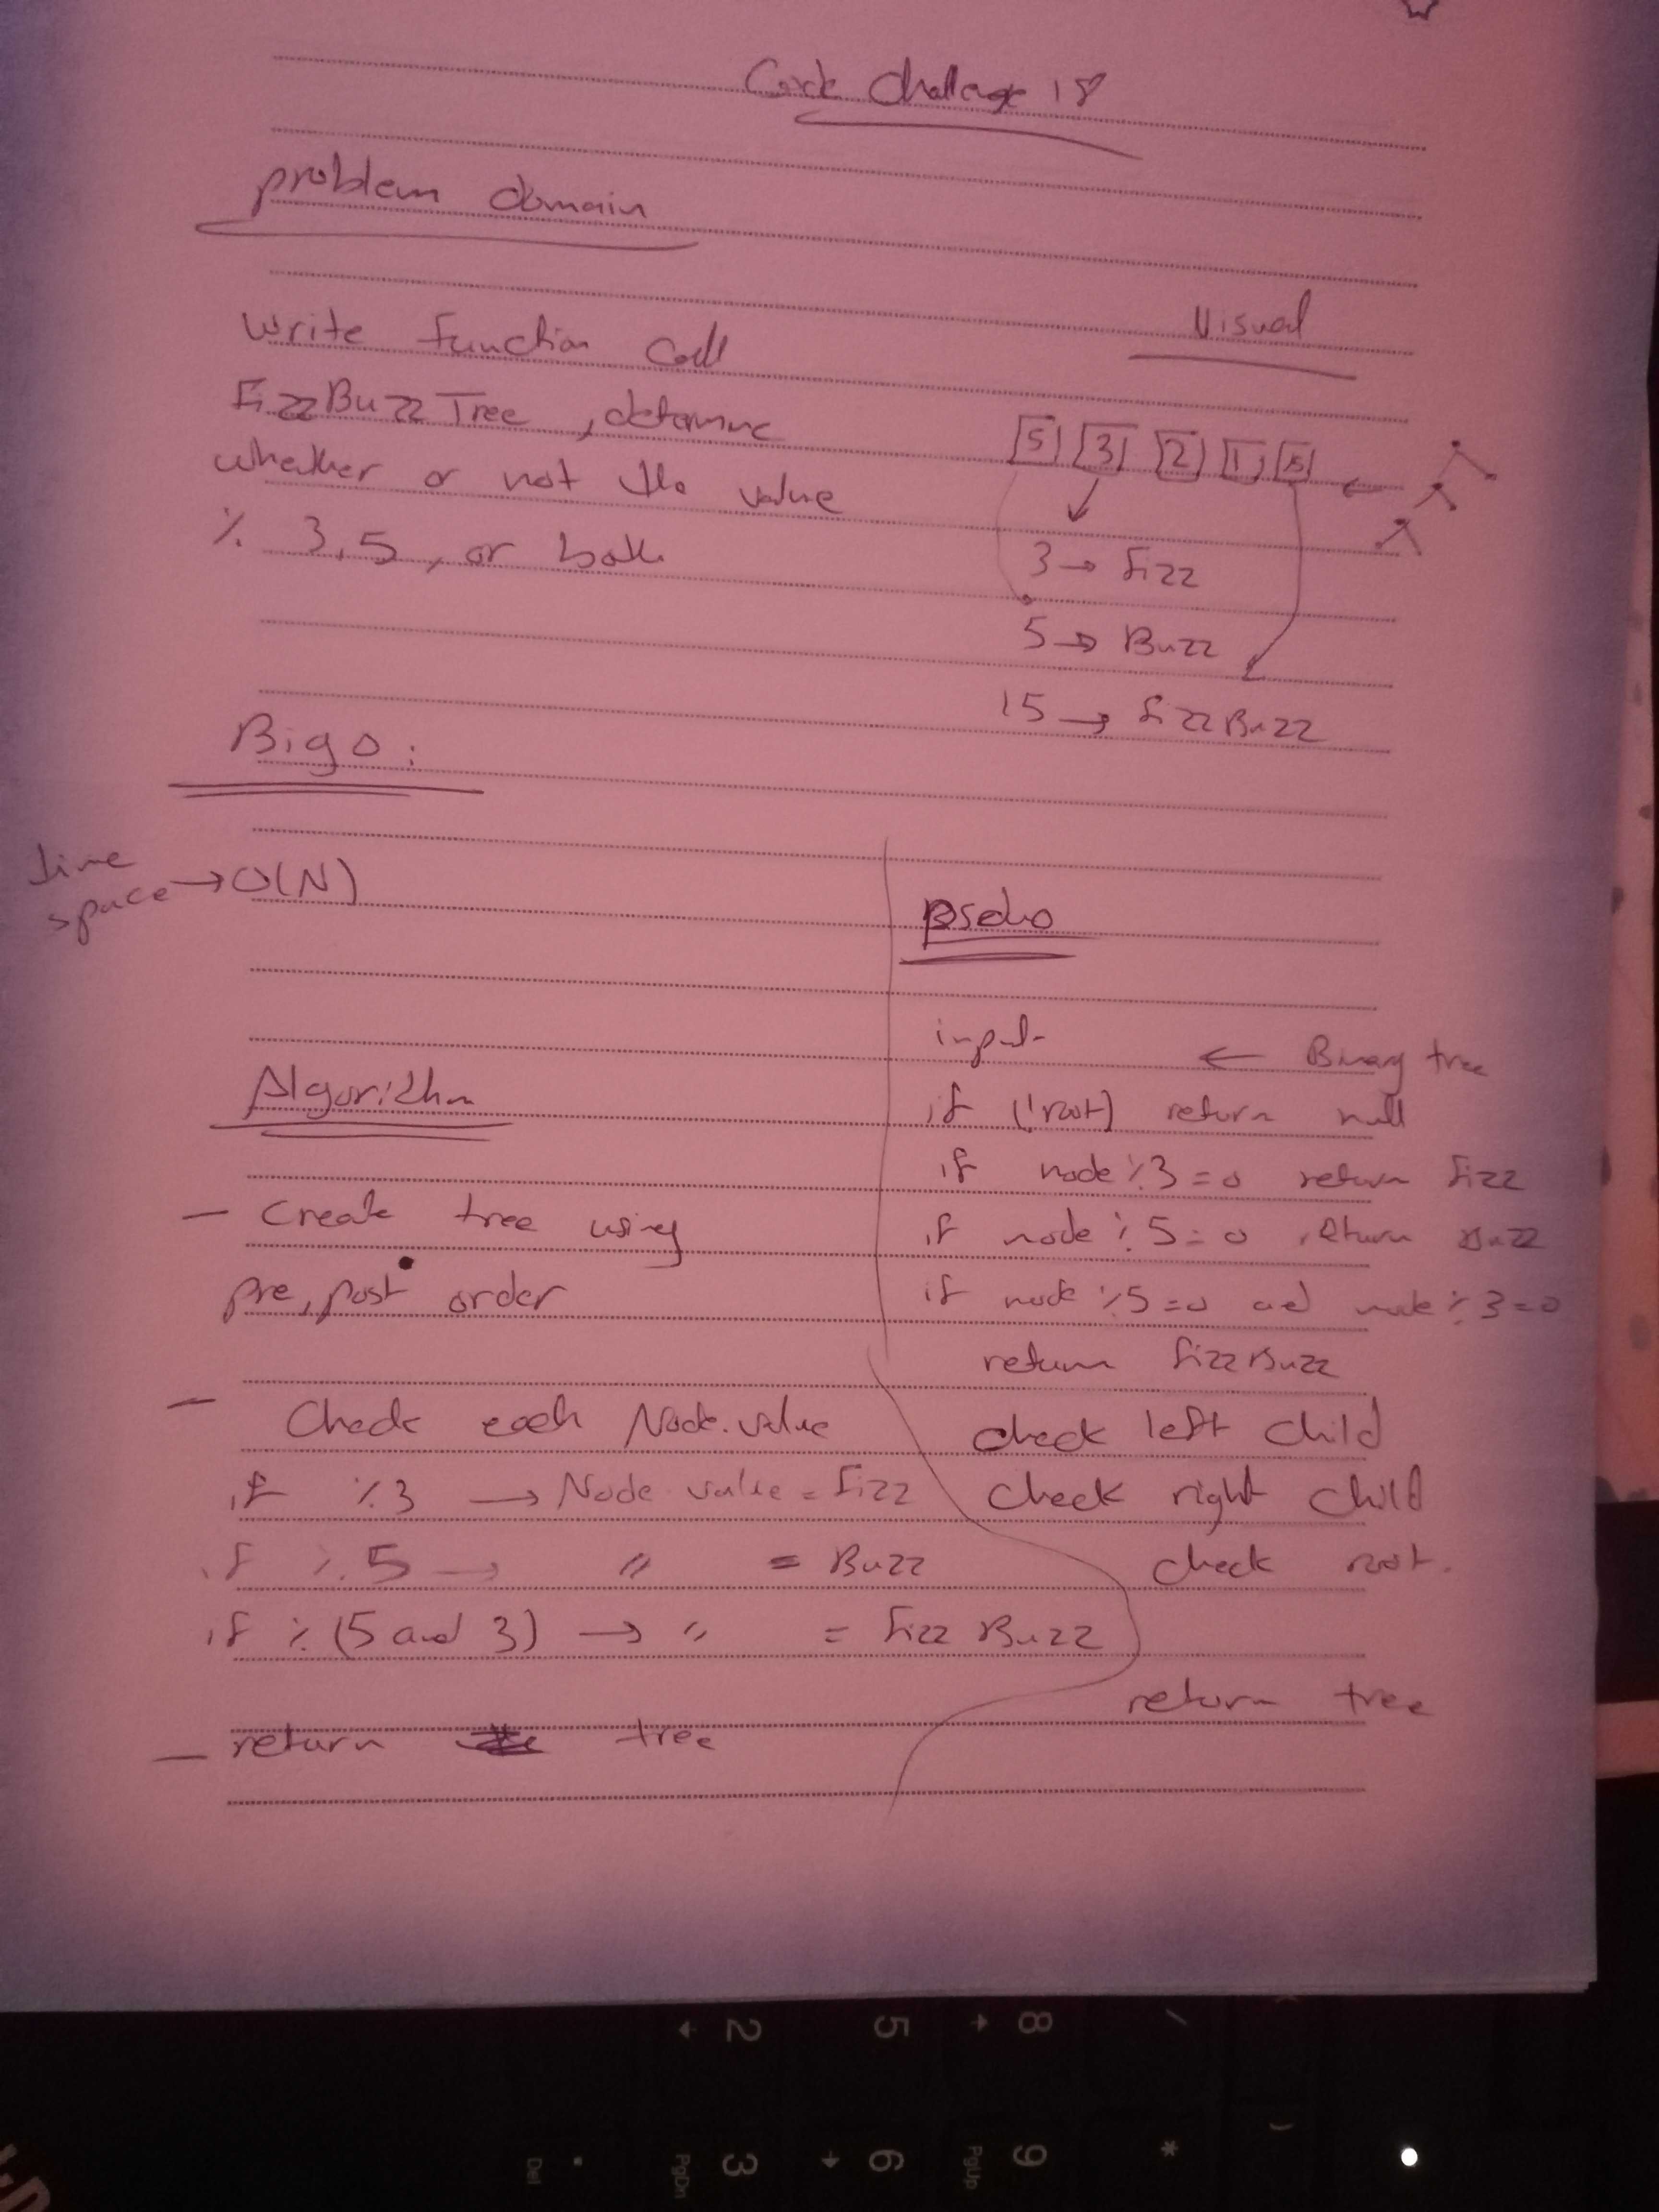 Code Challenge 18
problem domain
write function call
FizzBuzzTree, determine
whether or not the value
% 3,5, or both
Visual
5 3 2 1 15
←
3 → Fizz
5 → Buzz
15 → FizzBuzz
Big O:
time
space → O(N)
Algorithm
- Create tree using
pre, post order
- Check each Node.value
if %3 → Node value = Fizz
if %5 → " = Buzz
if %(5 and 3) → " = Fizz Buzz
- return tree
pseho
input ← Binary tree
if (!root) return null
if node %3=0 return Fizz
if node %5=0 return Buzz
if node %5=0 and node %3=0
return FizzBuzz
check left child
check right child
check root.
return tree
2 5 8 /
Del . PgDn 3 6 PgUp 9 *